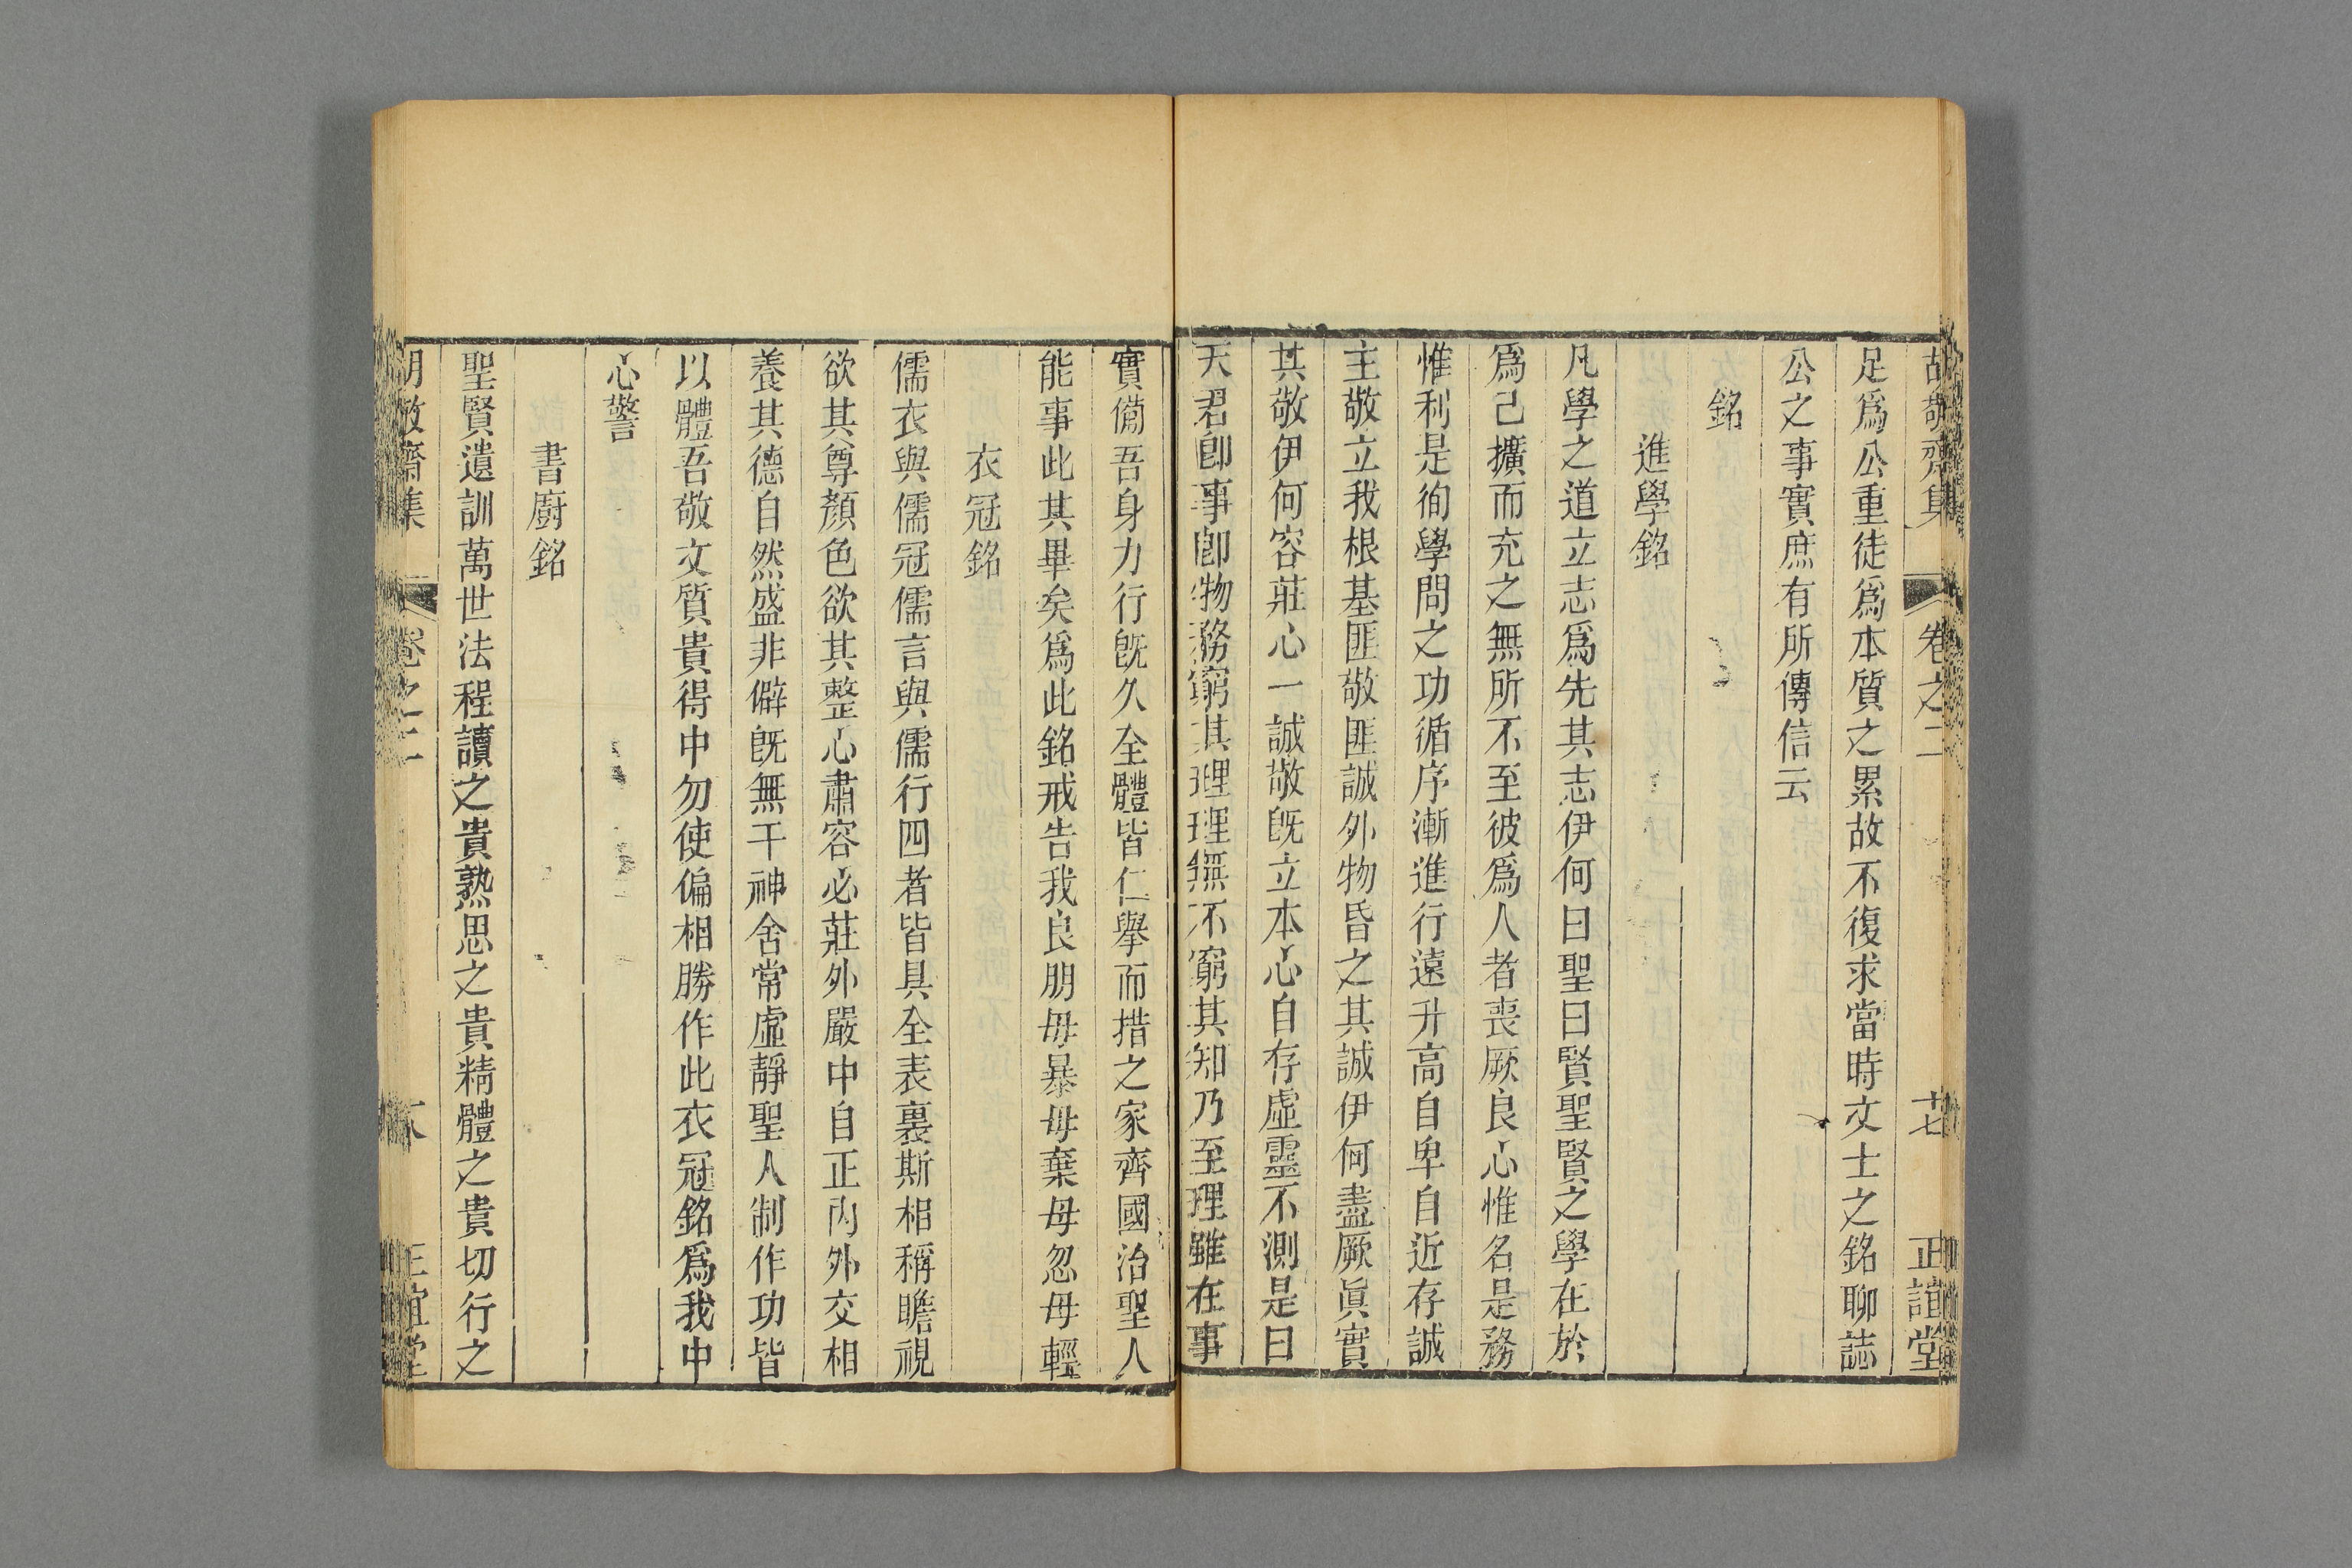 胡敬齋集 卷之二 十七 正誼堂
足爲公重徒爲本質之累故不復求當時文士之銘聊誌
公之事實庶有所傳信云
銘
進學銘
凡學之道立志爲先其志伊何曰聖曰賢聖賢之學在於
爲己擴而充之無所不至彼爲人者喪厥良心惟名是務
惟利是徇學問之功循序漸進行遠升高自卑自近存誠
主敬立我根基匪敬匪誠外物昏之其誠伊何盡厥眞實
其敬伊何容莊心一誠敬旣立本心自存虛靈不測是曰
天君卽事卽物務窮其理理無不窮其知乃至理雖在事
實備吾身力行旣久全體皆仁舉而措之家齊國治聖人
能事此其畢矣爲此銘戒告我良朋毋暴毋棄毋忽毋輕
衣冠銘
儒衣與儒冠儒言與儒行四者皆具全表裏斯相稱瞻視
欲其尊顏色欲其整心肅容必莊外嚴中自正內外交相
養其德自然盛非僻旣無干神舍常虛靜聖人制作功皆
以體吾敬文質貴得中勿使偏相勝作此衣冠銘爲我中
心警
書廚銘
聖賢遺訓萬世法程讀之貴熟思之貴精體之貴切行之
胡敬齋集 卷之二 正誼堂